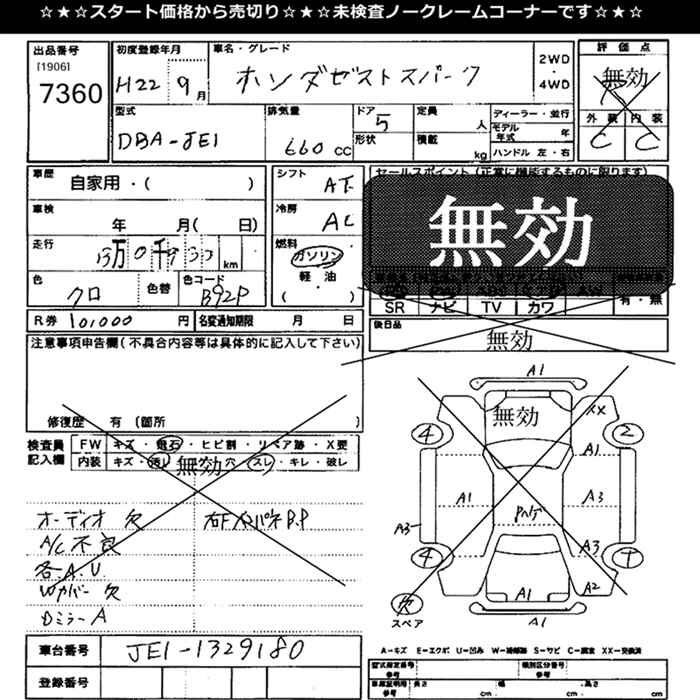 ☆★☆スタート価格から売切り☆★☆未検査ノークレームコーナーです☆★☆
出品番号
[1906]
7360
初度登録年月
H22 9月
車名・グレード
ホンダゼストスパーク
2WD
・
4WD
評価点
無効
外装 内装
C C
型式
DBA-JE1
排気量
660 cc
ドア
5
形状
定員
人
積載
kg
ディーラー・並行
モデル年式 年
ハンドル 左・右
車歴
自家用・( )
シフト
AT
セールスポイント (正常に機能するものに限ります)
無効
車検
年 月( 日)
冷房
AC
走行
万 千
km
燃料
ガソリン
軽・油
( )
色
クロ
色替
色コード
B92P
SR ナビ TV カワ
有・無
R券 101000 円
名変通知期限 月 日
後日品
無効
注意事項申告欄(不具合内容等は具体的に記入して下さい)
修復歴 有 (箇所 )
検査員
記入欄
FW キズ・飛石・ヒビ割・リペア跡・X要
内装 キズ・汚レ・穴・スレ・キレ・破レ
無効
オーディオ 欠
A/C不良
各A.U
Wカバー欠
DミラーA
無効
A1
XX
4
2
A1
A1
A3
A3
Pハゲ
A3
4
A2
A1
欠
スペア
A1
車台番号
JE1-1329180
登録番号
A-キズ E-エクボ U-凹み W-補修跡 S-サビ C-腐食 XX-交換済
型式指定番号
参考
類別区分番号
参考
車庫証明用
参考
長さ
cm
・幅
cm
・高さ
cm